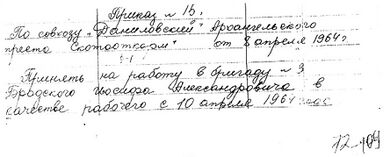 Приказ № 15.
По совхозу "Даниловский" Архангельского
треста Скотооткорм от 8 апреля 1964г
§-1
Принять на работу в бригаду № 3
Бродского Иосифа Александровича в
качестве рабочего с 10 апреля 1964 года